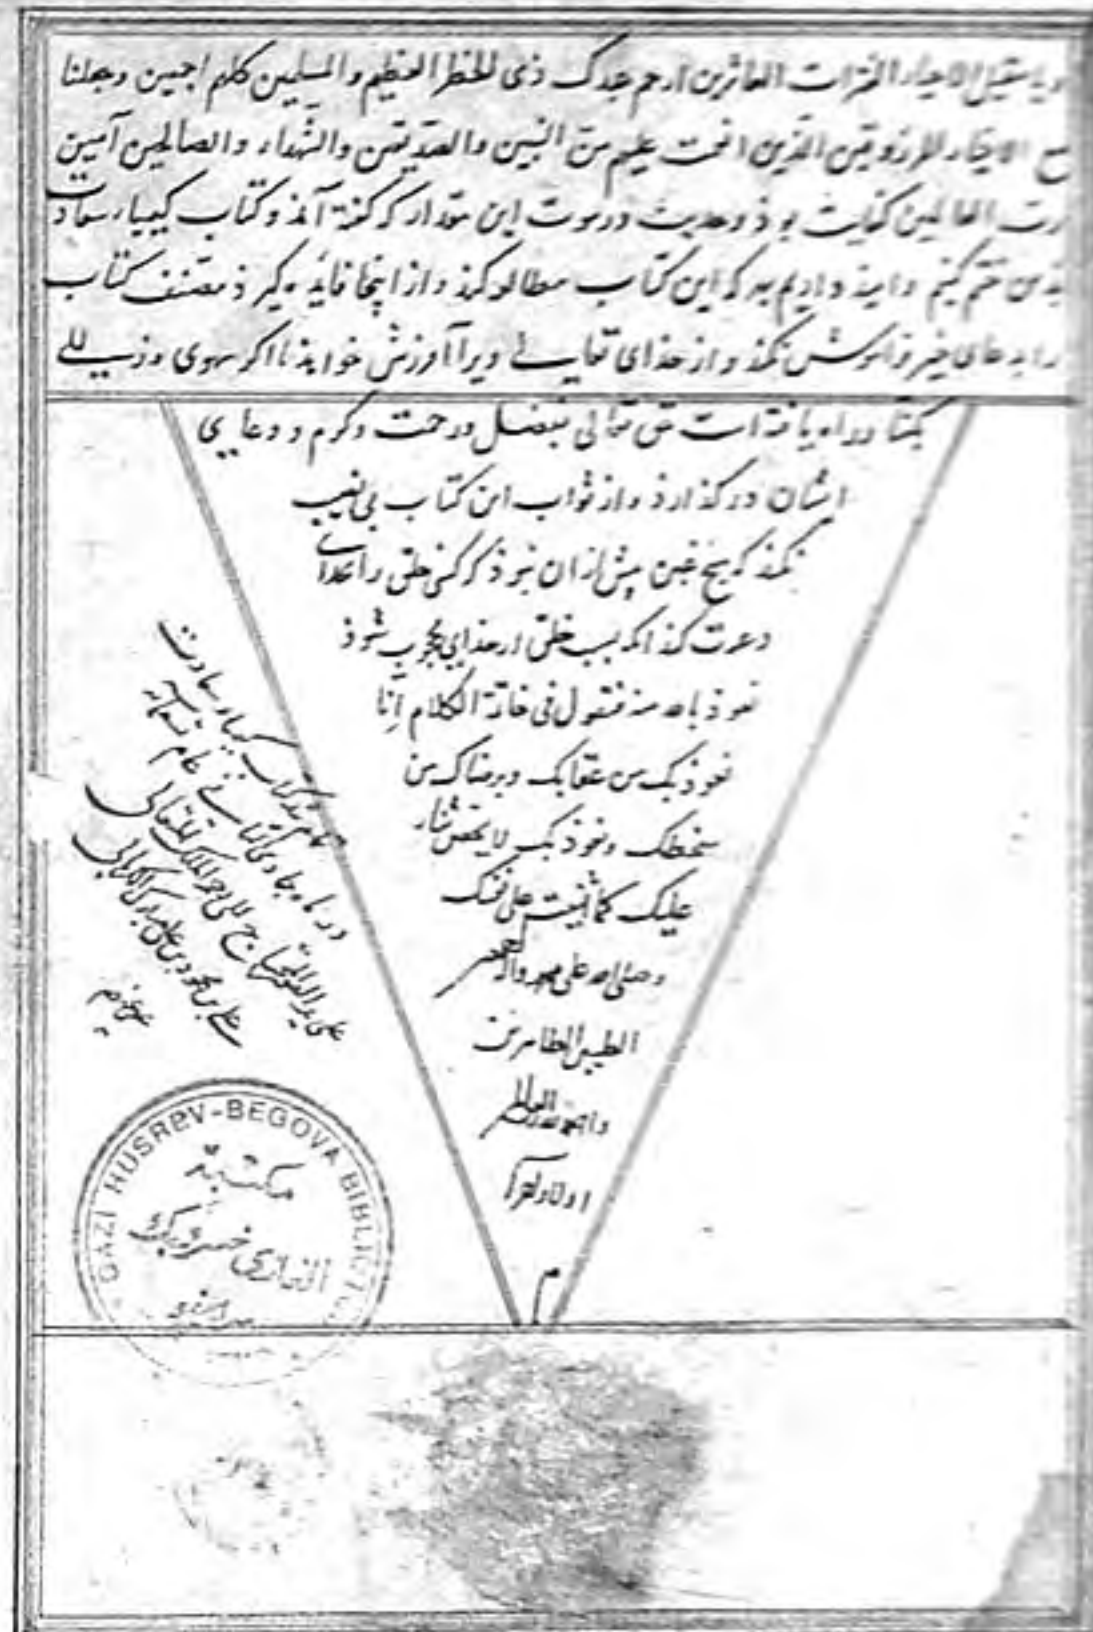 ویا مقیل الاحیاء العثرات العاثرین ارحم عبدک ذی الخطر العظیم والمسلمین کلهم اجمعین وجعلنا
مع الاحیاء المرزوقین الذین انعمت علیهم من النبیین والصدیقین والشهداء والصالحین آمین
رب العالمین کفایت بوذ وحدیث در موت این مقدار که گفته آمذ وکتاب کیمیاء سعادت
بذین ختم کنیم وامیذ داریم بهر که این کتاب مطالعه کند واز اینجا فایده گیرذ مصنف کتاب
را بدعای خیر فراموش نکند واز خذای تعالی ویرا آمرزش خواهذ تا اگر سهوی وزللی
بگفتار راه یافته است حق تعالی بفضل ورحمت وکرم ودعای
ایشان درگذارذ واز ثواب این کتاب بی نصیب
نکند که هیچ غبن بیش از آن نبوذ که کسی خلق را بخدای
دعوت کند انگه بسبب خلق از خذای محجوب شوذ
نعوذ بالله منه فنقول فی خاتمة الکلام انا
نعوذ بک من عقابک وبرضاک من
سخطک ونعوذ بک لا نحصی ثناء
علیک کما اثنیت علی نفسک
وصلی الله علی محمد واله اجمعین
الطیبین الطاهرین
والحمد لله رب العالمین
اولا وآخرا
م
تمام شد کتاب کیمیاء سعادت
در ماه جمادی الثانی فی عام تسعمایه
علی ید الفقیر المحتاج الی الله الملک المتعالی
علی بن محمود بن علی
GAZI HUSREV-BEGOVA BIBLIOTEKA
مکتبة
الغازی خسرو بک
سرایفو